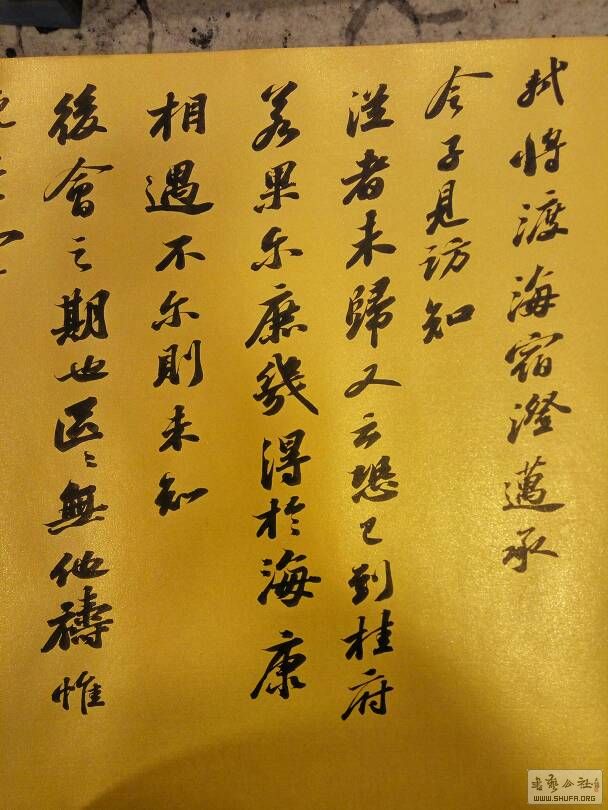 軾將渡海宿澄邁承
令子見訪知
從者未歸又云恐已到桂府
若果尔庶幾得於海康
相遇不尔則未知
後會之期也區々無他禱惟
晚
書藝公社
WWW.SHUFA.ORG